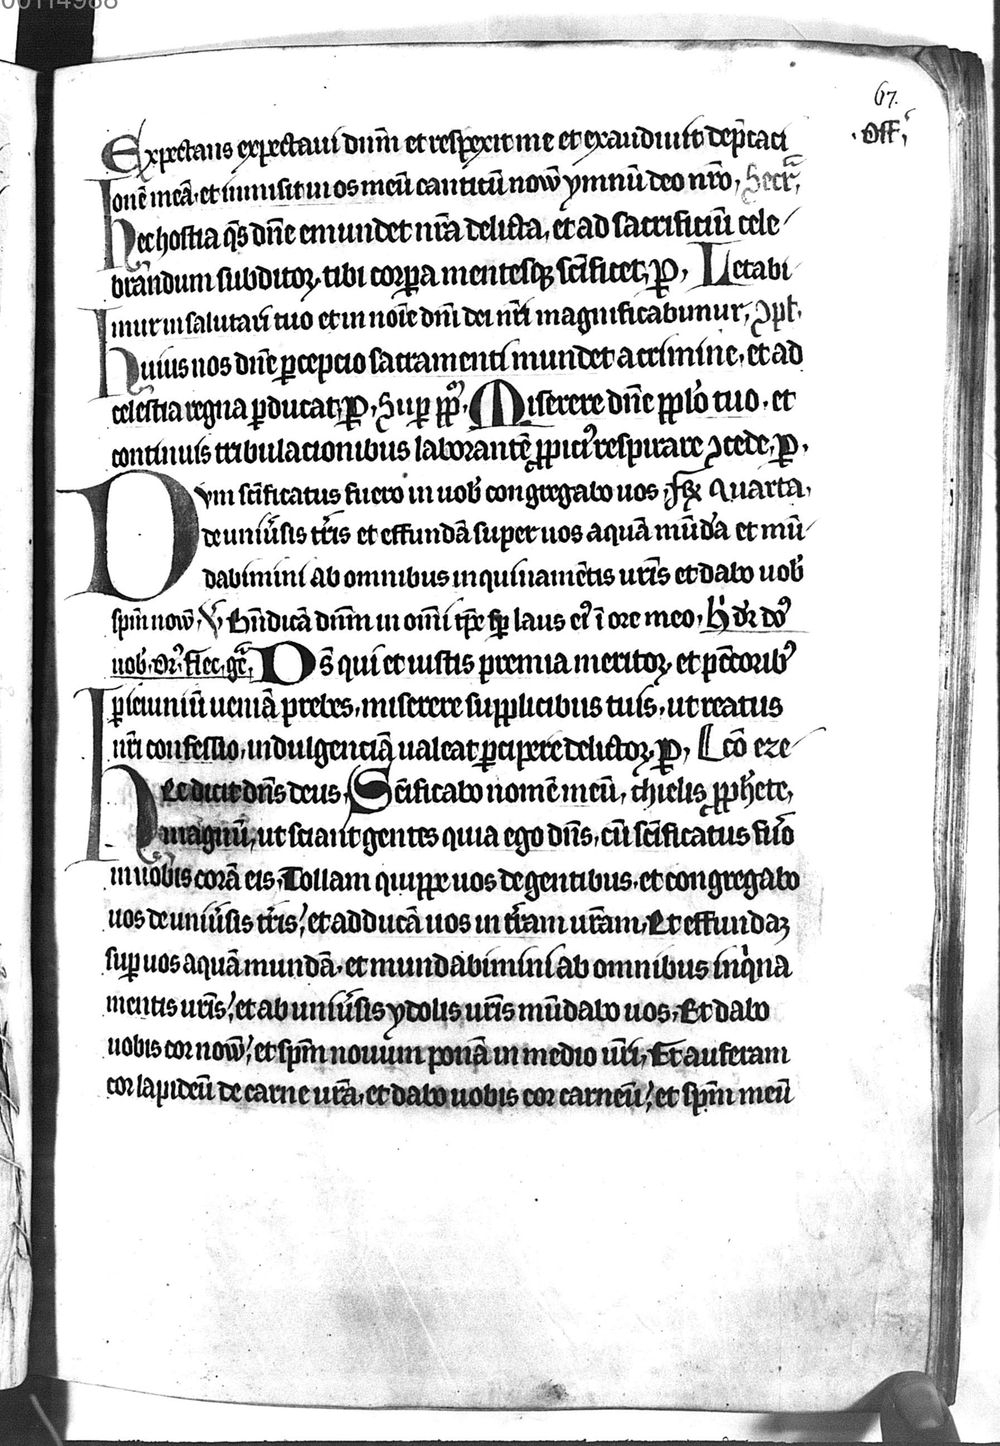 00114988
67.
Expectans expectaui dnm̄ et respexit me et exaudiuit dep̄caci
.Off,
onē meā. et inmisit in os meū canticū nouū ymnū deo nr̄o, Secr̄,
hec hostia qs̄ dn̄e emundet nr̄a delicta, et ad sacrificiū cele
brandum subditoꝝ tibi corꝑa mentesqꝫ scīficet, ꝑ, Letabi
mur in salutari tuo et in noīe dnī dei nr̄i magnificabimur,
huius nos dn̄e ꝑcepcio sacramenti mundet a crimine, et ad
celestia regna ꝑducat, ꝑ, Suꝑ pp̄lm. Miserere dn̄e pplo tuo, et
continuis tribulacionibus laborantē ꝓpicius respirare ꝯcede, ꝑ,
Dum scīficatus fuero in uob̄ congregabo uos, quarta,
de uniūsis tr̄is et effundā super uos aquā mūdā et mū
dabimini ab omnibus inquinamētis ur̄is et dabo uob̄
spm̄ nouū, V̄ Bn̄dicā dnm̄ in omī tp̄e sp̄ laus eiꝰ ī ore meo,
uob̄. Flec. ge. Ds̄ qui et iustis premia meritoꝝ et pctoribꝰ
ꝑ ieiuniū ueniā prebes, miserere supplicibus tuis, ut reatus
nr̄i confessio, indulgenciā ualeat ꝑcipere delictoꝝ, ꝑ, Lcō eze
Hec dicit dn̄s deus, Scīficabo nomē meū, chielis ꝓphete,
magnū, ut sciant gentes quia ego dn̄s, cū scīficatus fuero
in uobis corā eis, Tollam quippe uos de gentibus, et congregabo
uos de uniūsis tr̄is, et adducā uos in tr̄am ur̄am, Et effundaꝫ
suꝑ uos aquā mundā, et mundabimini ab omnibus inqina
mentis ur̄is, et ab uniūsis ydolis ur̄is mūdabo uos, Et dabo
uobis cor nouū, et spm̄ nouum ponā in medio ur̄i, Et auferam
cor lapideū de carne ur̄a, et dabo uobis cor carneū, et spm̄ meū